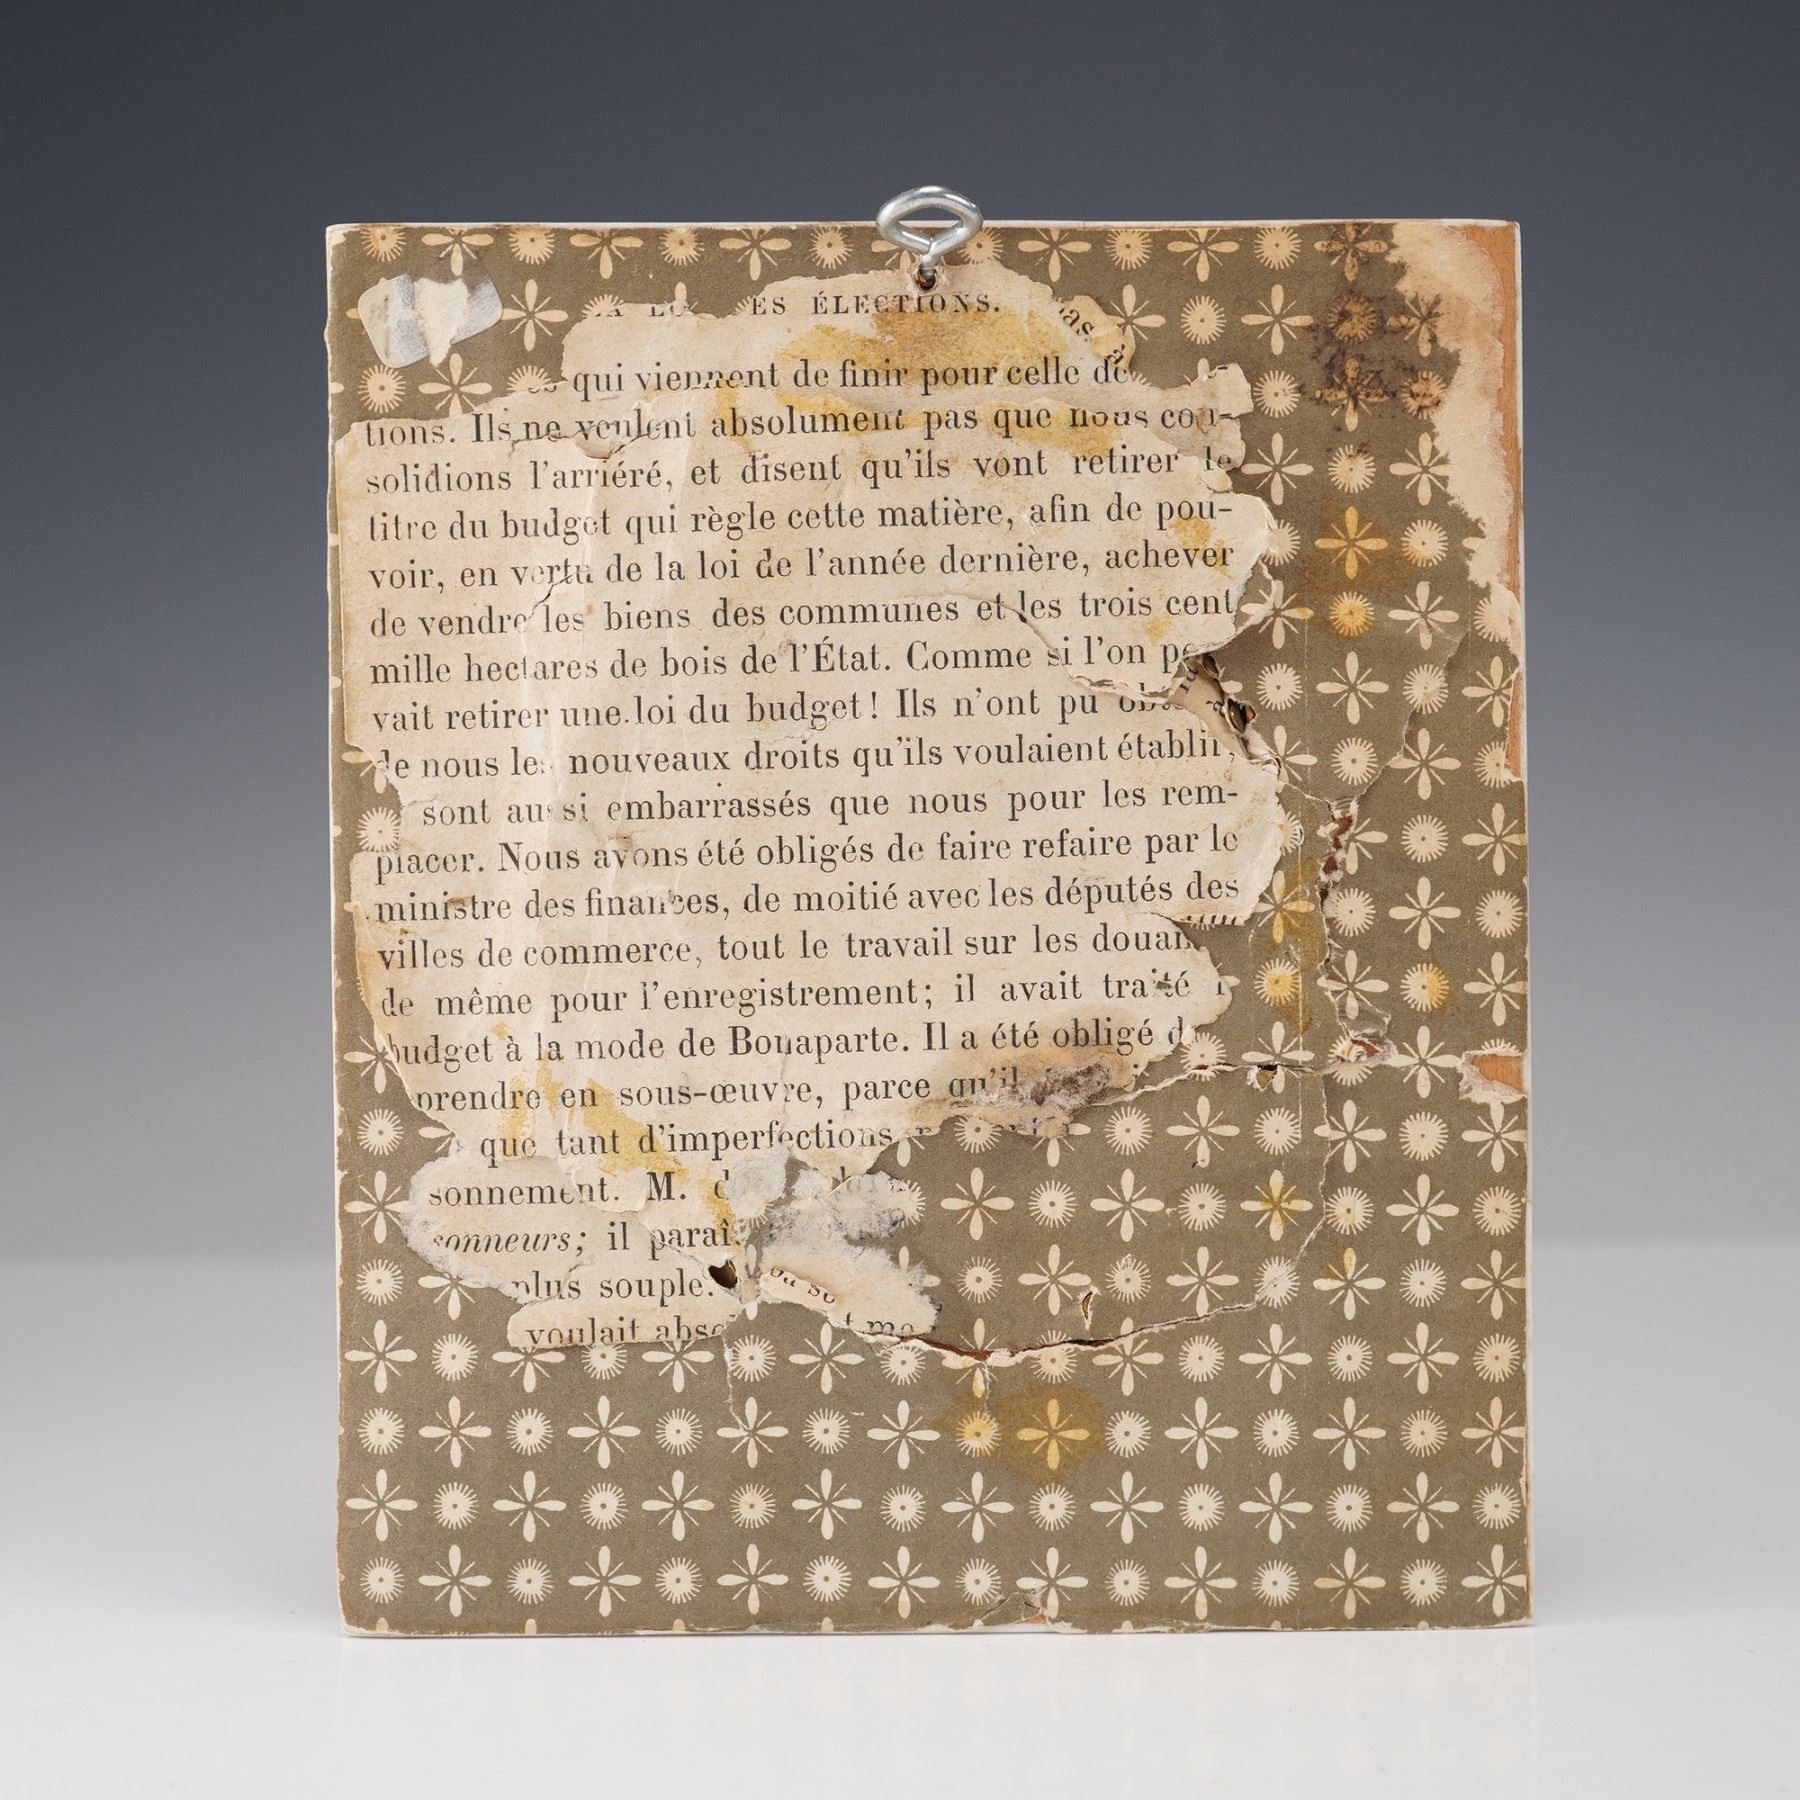 ES ÉLECTIONS.
qui viennent de finir pour celle de
tions. Ils ne veulent absolument pas que nous con-
solidions l'arriéré, et disent qu'ils vont retirer le
titre du budget qui règle cette matière, afin de pou-
voir, en vertu de la loi de l'année dernière, achever
de vendre les biens des communes et les trois cent
mille hectares de bois de l'État. Comme si l'on
vait retirer une loi du budget! Ils n'ont pu
de nous les nouveaux droits qu'ils voulaient établir,
sont aussi embarrassés que nous pour les rem-
placer. Nous avons été obligés de faire refaire par le
ministre des finances, de moitié avec les députés des
villes de commerce, tout le travail sur les douan
de même pour l'enregistrement; il avait traité
budget à la mode de Bonaparte. Il a été obligé
prendre en sous-œuvre, parce qu'il
que tant d'imperfections
sonnement. M.
sonneurs; il paraî
plus souple.
ou so
voulait abso